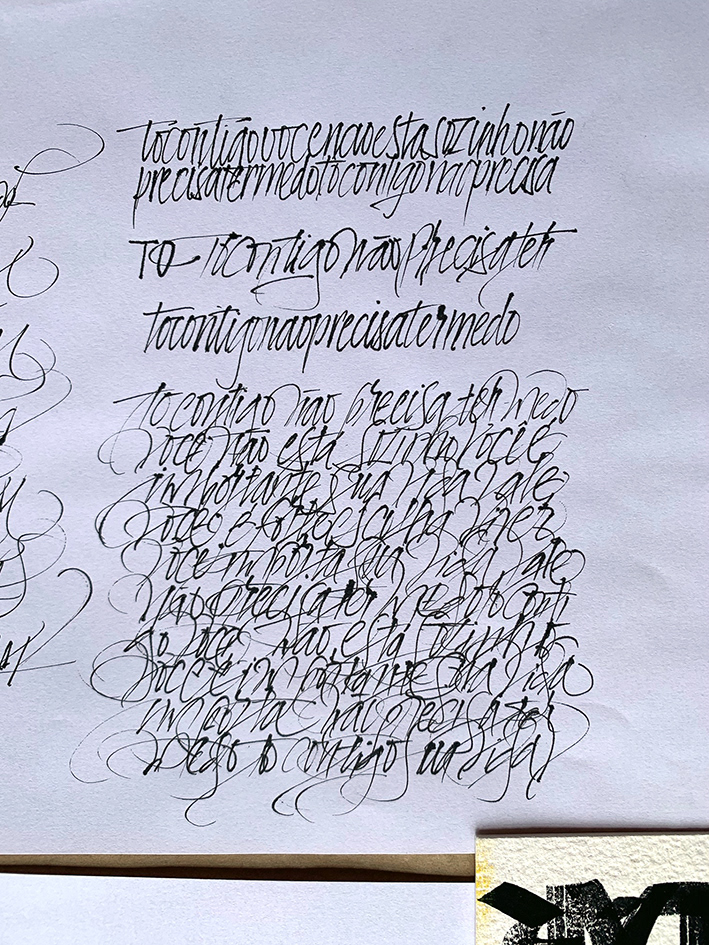 tôcontigovocenaoestasozinhonão
precisatermedotôcontigonãoprecisa
TO tôcontigonãoprecisater
tocontigonaoprecisatermedo
tô contigo não precisa ter medo
você não está sozinho você é
importante sua vida vale
você é forte escolha viver
você importa sua vida vale
não precisa ter medo tô conti
go você não está sozinho
você é importante sua vida
importa não precisa ter
medo tô contigo sua vida